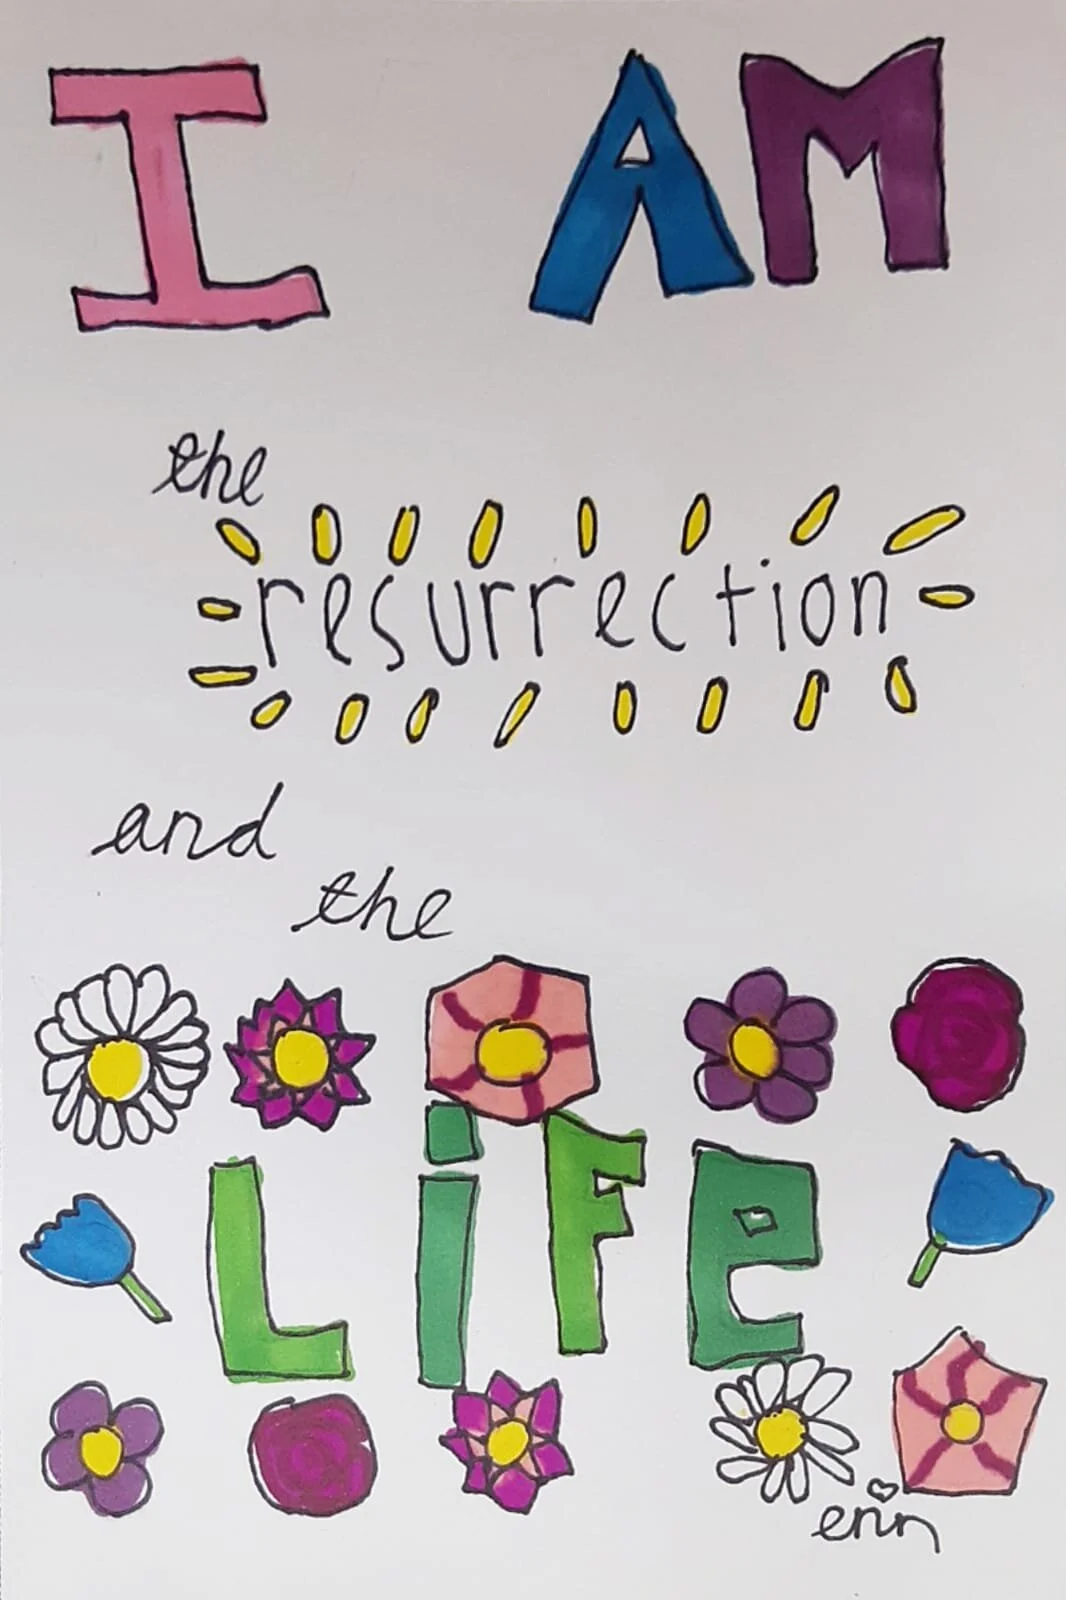 I AM
the
resurrection
and
the
LiFe
erin